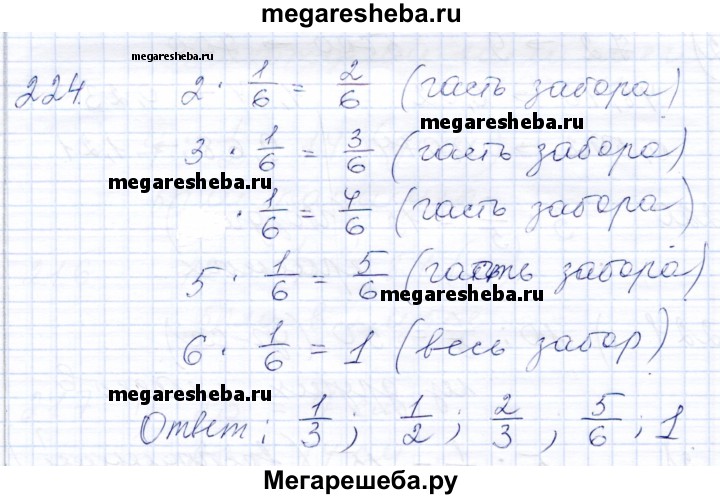 megaresheba.ru
megaresheba.ru
224. 2 · 1/6 = 2/6 (часть забора)
megaresheba.ru
3 · 1/6 = 3/6 (часть забора)
megaresheba.ru
· 1/6 = 4/6 (часть забора)
5 · 1/6 = 5/6 (часть забора)
megaresheba.ru
6 · 1/6 = 1 (весь забор)
megaresheba.ru
Ответ: 1/3; 1/2; 2/3; 5/6; 1
Мегарешеба.ру